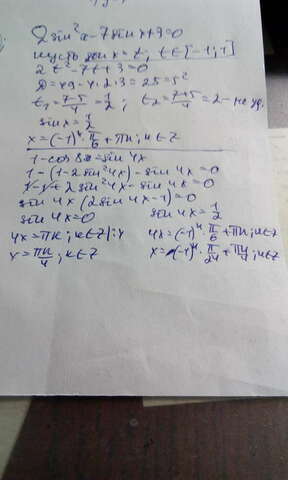 2 sin² x - 7 sin x + 3 = 0
пусть sin x = t, t ∈ [-1; 1]
2t² - 7t + 3 = 0
D = 49 - 4·2·3 = 25 = 5²
t₁ = 7-5/4 = 1/2 ; t₂ = 7+5/4 = 2 - не уд.
sin x = 1/2
x = (-1)ᵏ · π/6 + πk; k ∈ Z
1 - cos 8x = sin 4x
1 - (1 - 2 sin² 4x) - sin 4x = 0
1 - 1 + 2 sin² 4x - sin 4x = 0
sin 4x (2 sin 4x - 1) = 0
sin 4x = 0 sin 4x = 1/2
4x = πk; k ∈ Z | : 4 4x = (-1)ᵏ · π/6 + πk; k ∈ Z
x = πk/4; k ∈ Z x = (-1)ᵏ · π/24 + πk/4; k ∈ Z